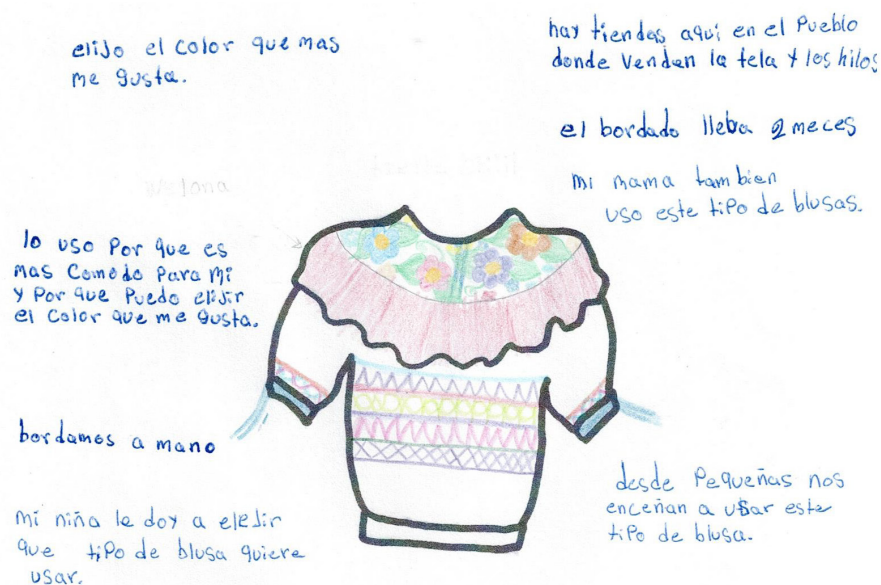 elijo el color que mas
me gusta.
hay tiendas aqui en el Pueblo
donde venden la tela y los hilos
el bordado lleba 2 meces
mi mama tambien
uso este tipo de blusas.
lo uso Por que es
mas Comodo Para mi
y Por que Puedo elijir
el Color que me gusta.
bordamos a mano
mi niña le doy a elejir
que tipo de blusa quiere
usar.
desde Pequeñas nos
enceñan a usar este
tipo de blusa.